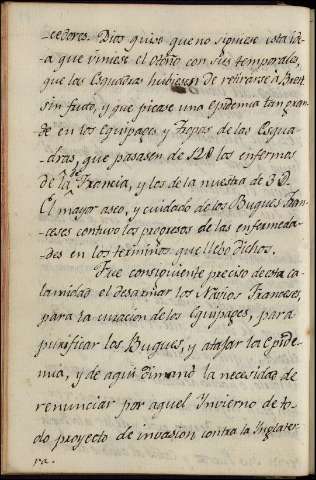 -cedores. Dios quiso que no siguiese esta id-
-a que viniese el otoño con sus temporales,
que las Esquadras hubiesen de retirarse à Brest
sin fruto, y que picase una epidemia tan gran-
de en los equipages y tropas de las Esqua-
-dras, que pasasen de 12 D los enfermos
de la de Francia, y los de la nuestra de 3 D.
El mayor aseo, y cuidado de los Buques Fran-
ceses contuvo los progresos de las enfermeda-
-des en los terminos que llebo dichos.
Fue consiguiente preciso de esta ca-
lamidad el desarmar los Navios Franceses,
para la curacion de los Equipages, para
purificar los Buques, y atajar la epide-
mia, y de aqui dimanó la necesidad de
renunciar por aquel Ynvierno de to-
do proyecto de invasion contra la Inglater-
ra.